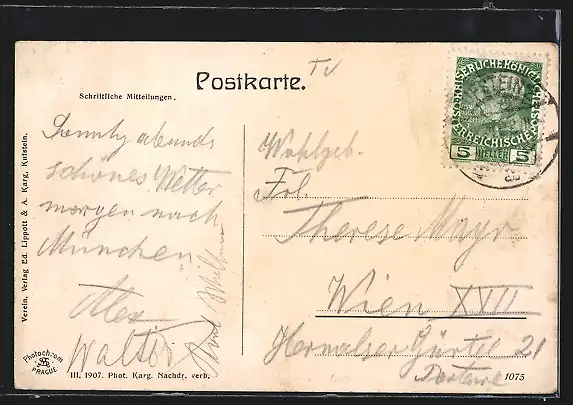 Postkarte.
TV
Schriftliche Mitteilungen.
abends
schönes Wetter
morgen nach
München
Alex
Walter
Wohlgeb.
Frl.
Therese Mayr
Wien XVII
Hernalser Gürtel 21
KAISERLICHE KÖNIGLICHE
ÖSTERREICHISCHE
5 HELLER 5
Verein. Verlag Ed. Lippott & A. Karg, Kufstein.
Photochrom
PRAGUE
III. 1907. Phot. Karg. Nachdr. verb.
1075